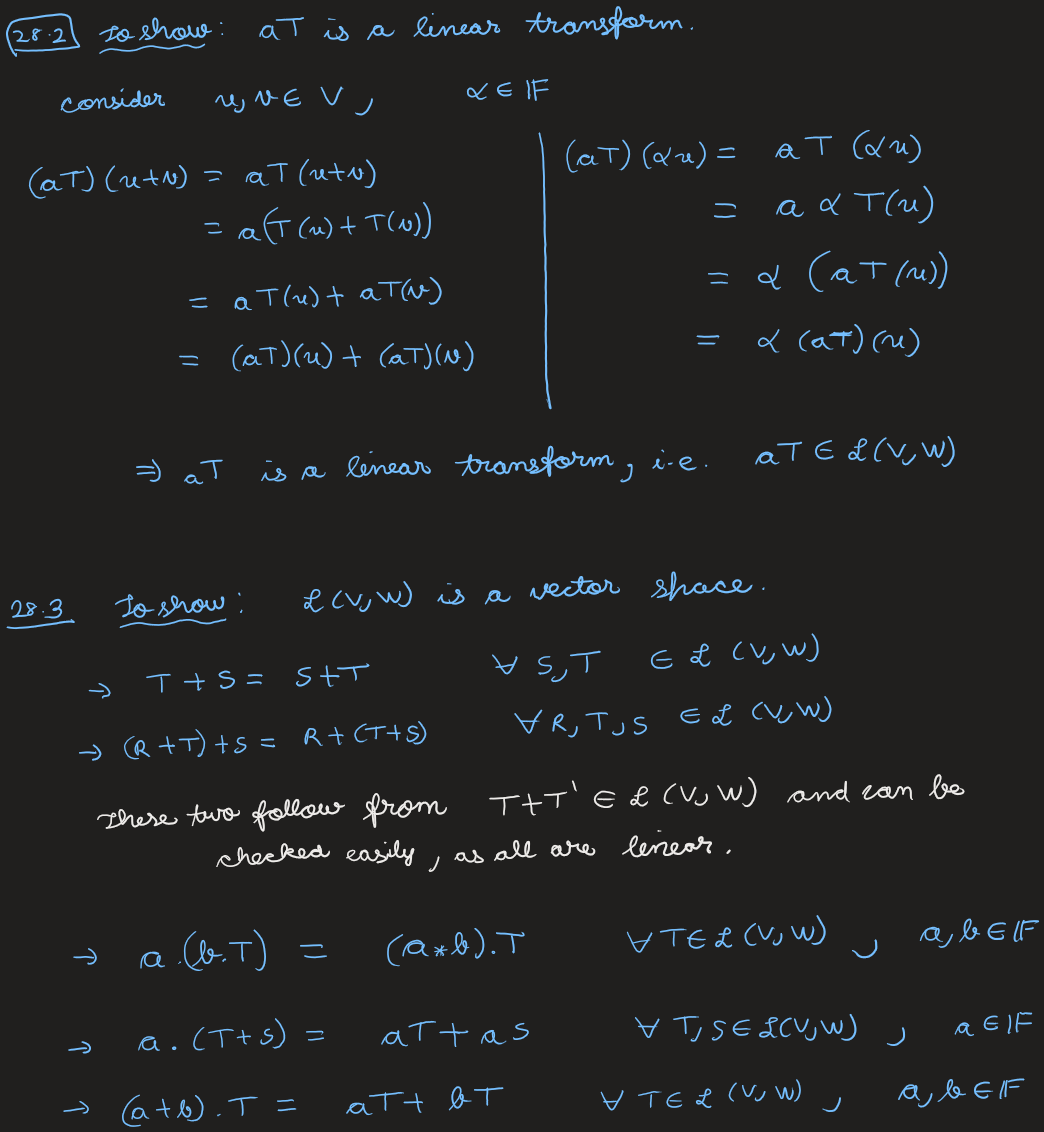 28.2 To show: aT is a linear transform.
consider u, v ∈ V, α ∈ F
(aT)(u+v) = aT(u+v)
= a(T(u) + T(v))
= aT(u) + aT(v)
= (aT)(u) + (aT)(v)
(aT)(αu) = aT(αu)
= a α T(u)
= α (aT(u))
= α (aT)(u)
⇒ aT is a linear transform, i.e. aT ∈ ℒ(V,W)
28.3 To show: ℒ(V,W) is a vector space.
→ T + S = S + T ∀ S, T ∈ ℒ(V,W)
→ (R + T) + S = R + (T+S) ∀ R, T, S ∈ ℒ(V,W)
These two follow from T+T' ∈ ℒ(V,W) and can be
checked easily, as all are linear.
→ a.(b.T) = (a*b).T ∀ T ∈ ℒ(V,W), a, b ∈ F
→ a.(T+S) = aT + aS ∀ T, S ∈ ℒ(V,W), a ∈ F
→ (a+b).T = aT + bT ∀ T ∈ ℒ(V,W), a, b ∈ F